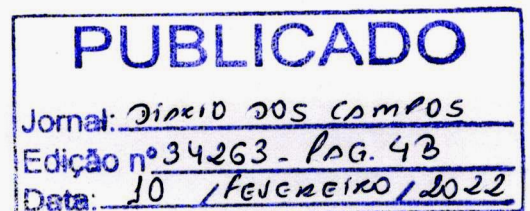 PUBLICADO
Jornal: DIÁRIO DOS CAMPOS
Edição nº 34263 - PAG. 4B
Data: 10 / FEVEREIRO / 2022